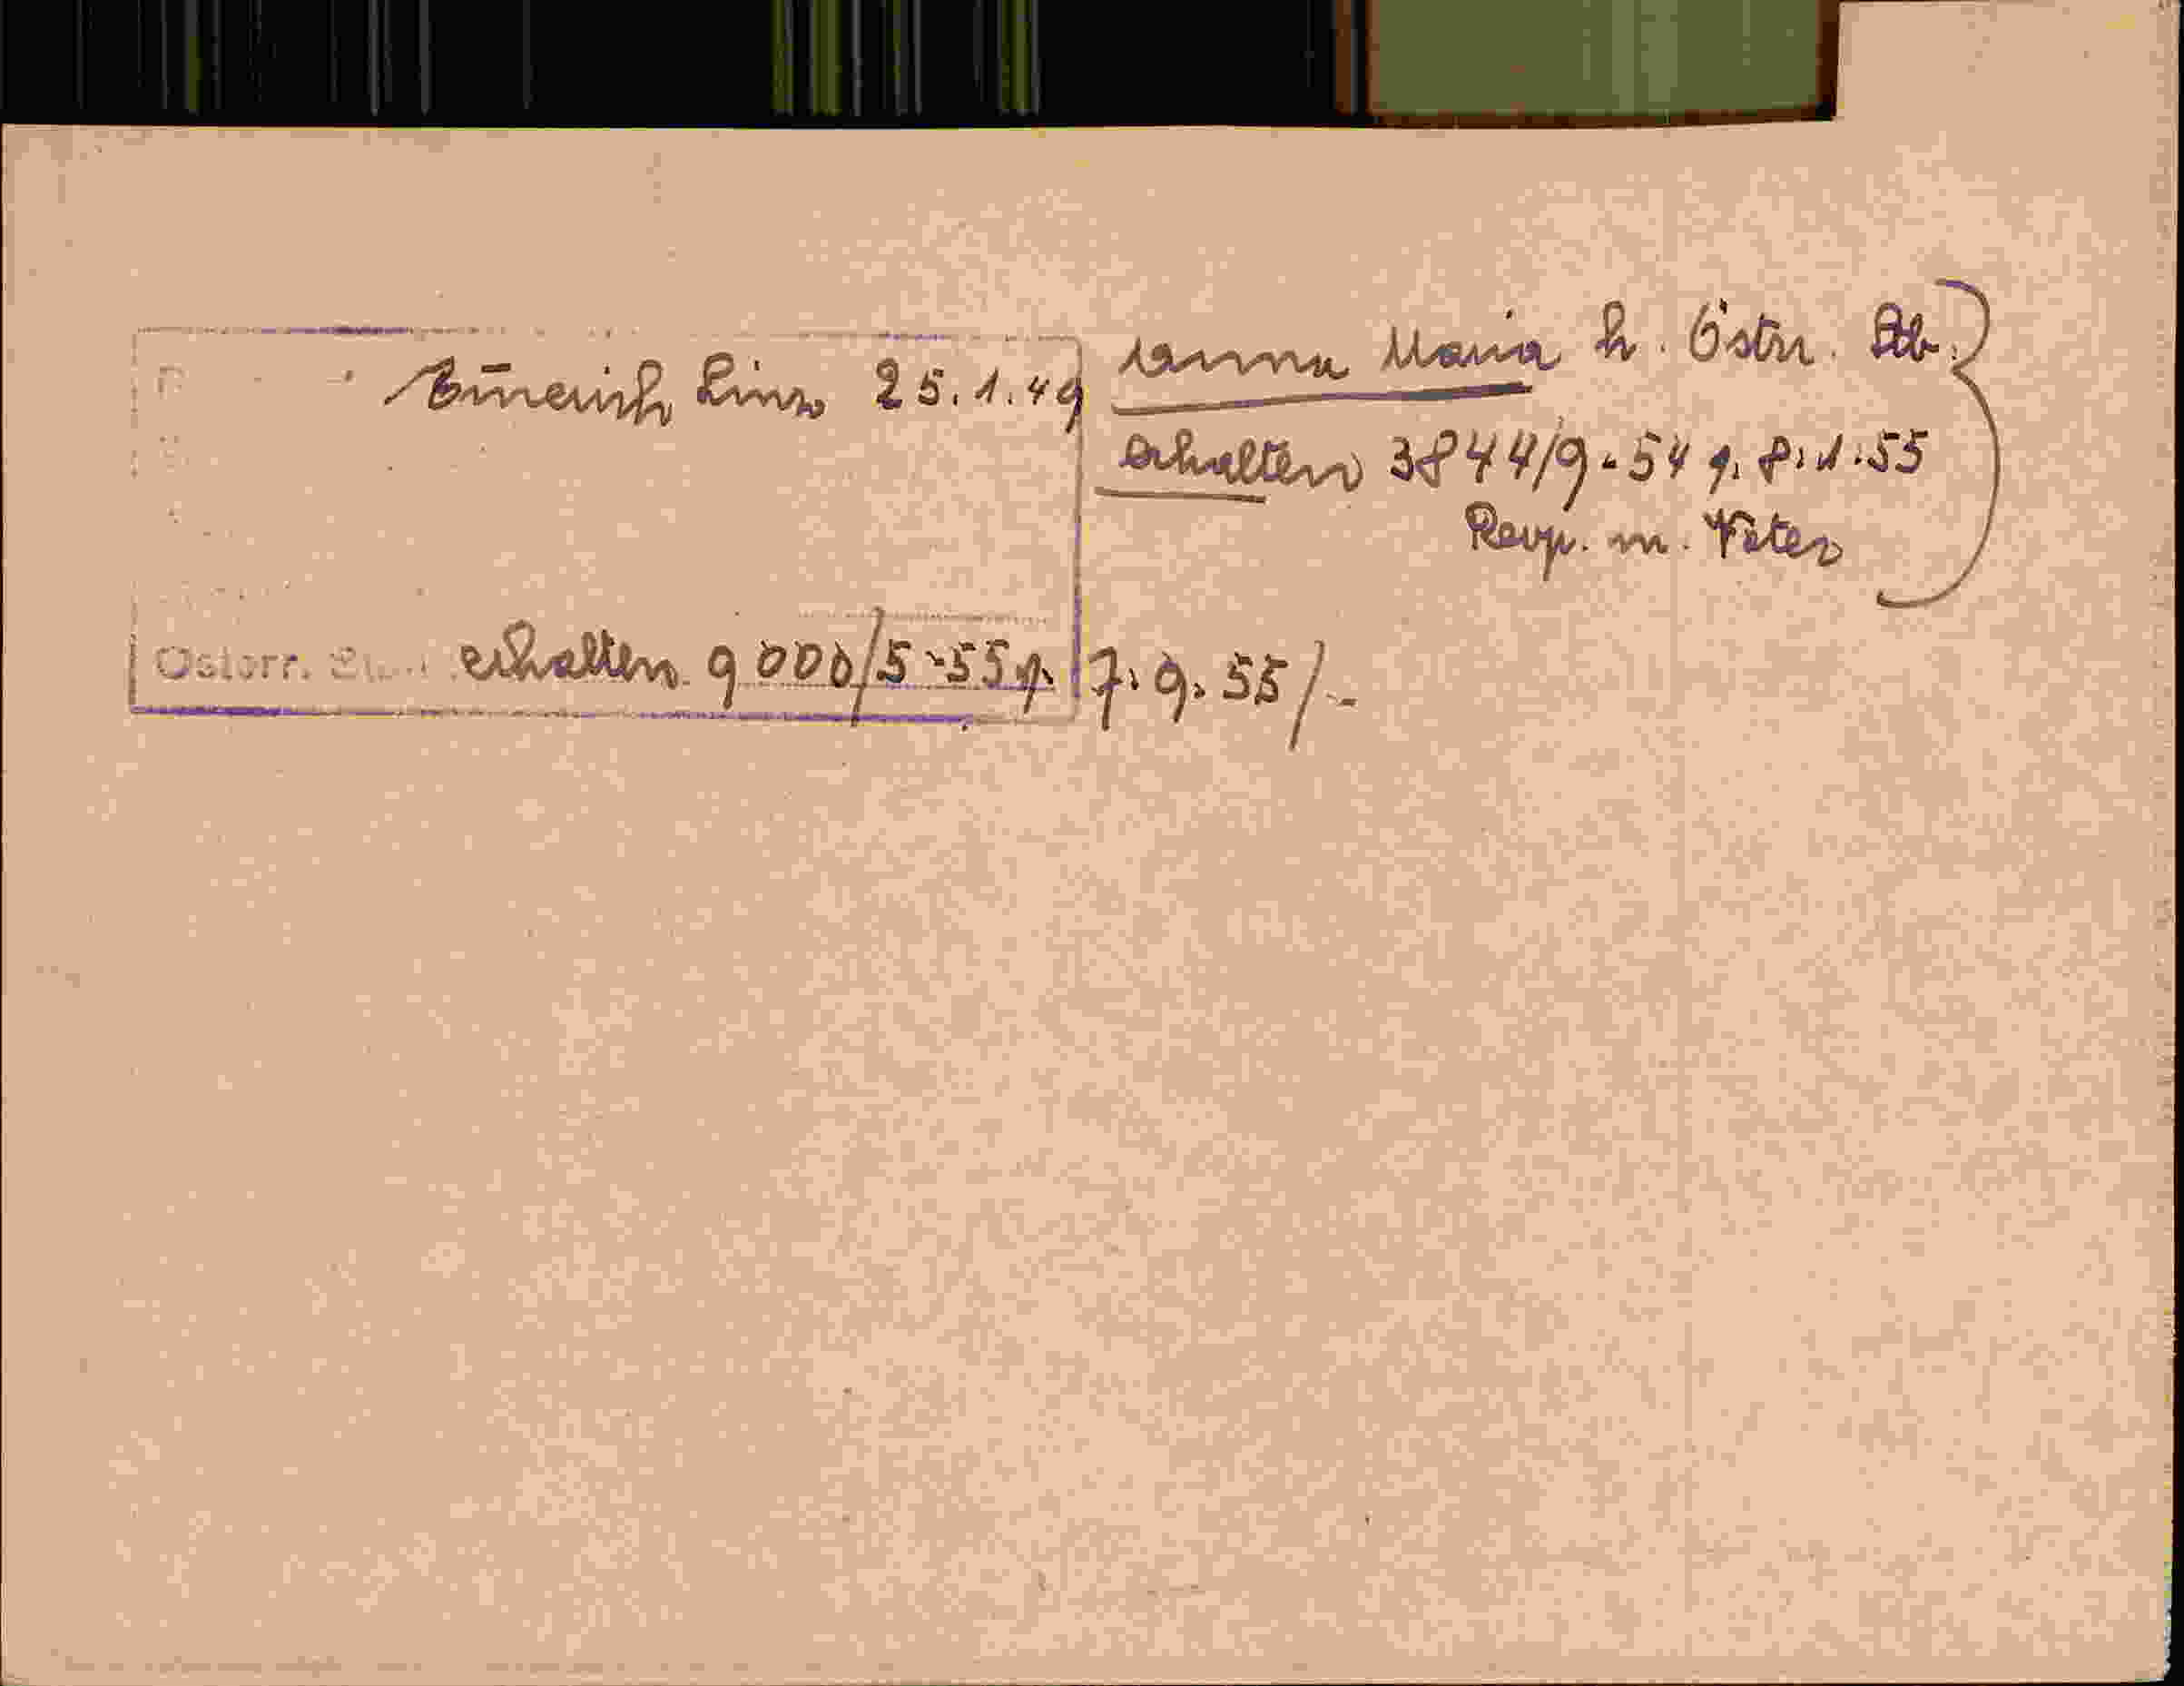 Emerich Linz 25.1.49
Anna Maria h. Östr. Stb.
erhalten 3844/9-54 g. 8.1.55
Resp. m. Vater
Österr. erhalten 9000/5-55 g. 7.9.55/-